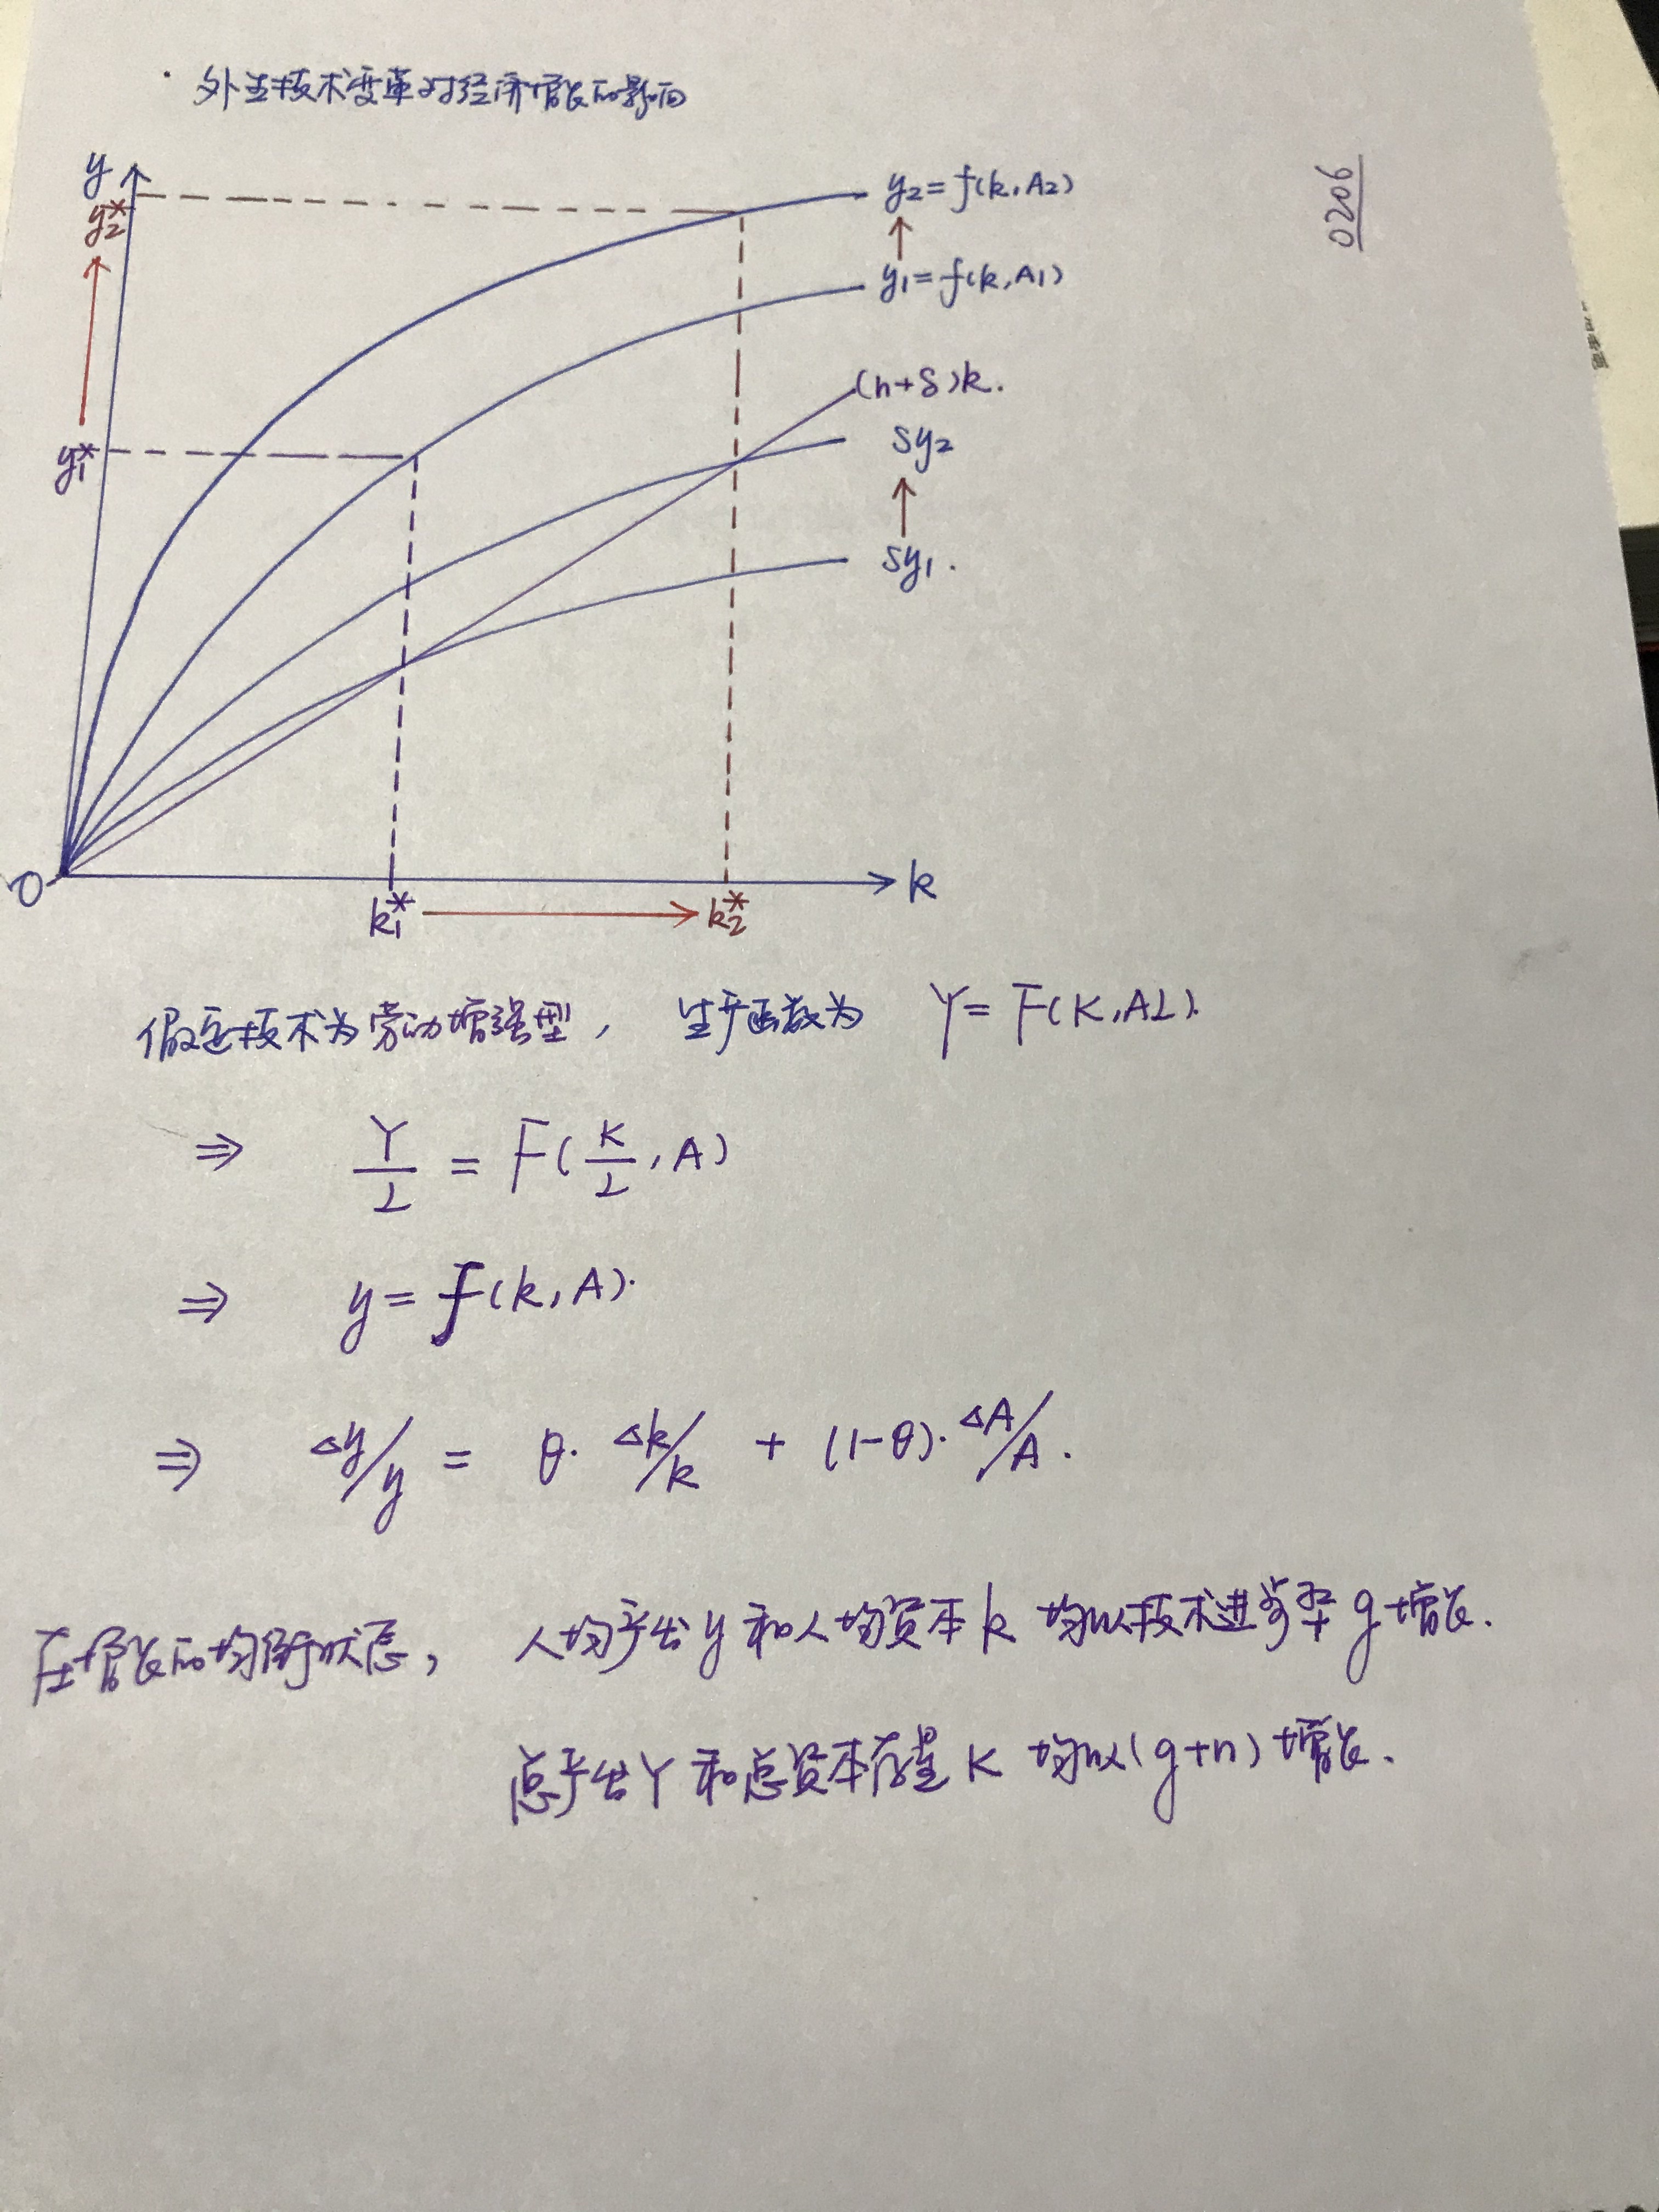 · 外生技术变革对经济增长的影响
0206
y
y₂*
y₂=f(k,A₂)
↑
y₁=f(k,A₁)
(n+δ)k.
y₁*
sy₂
↑
sy₁.
O
k
k₁* → k₂*
假定技术为劳动增强型, 生产函数为 Y=F(K,AL).
⇒ Y/L = F(K/L,A)
⇒ y=f(k,A).
⇒ Δy/y = θ·Δk/k + (1-θ)·ΔA/A.
在增长的均衡状态, 人均产出y和人均资本k 均以技术进步率g增长.
总产出Y和总资本存量K 均以(g+n)增长.